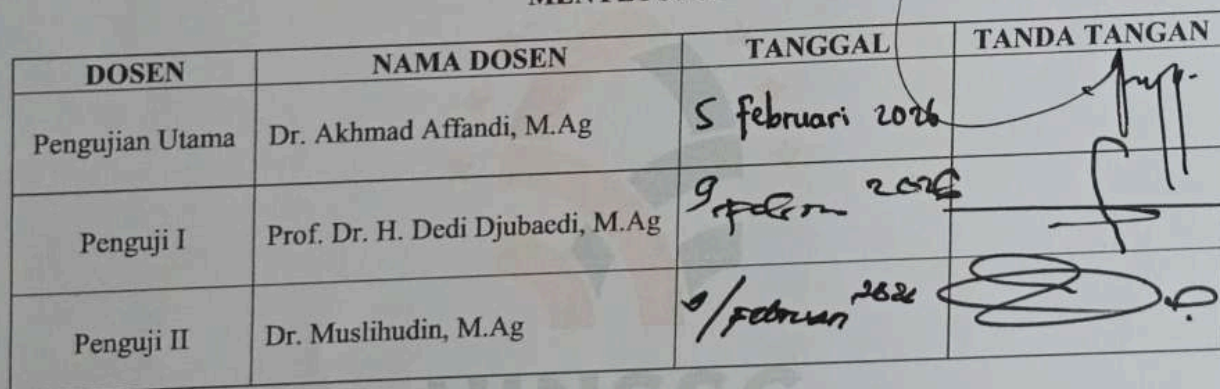 DOSEN NAMA DOSEN TANGGAL TANDA TANGAN
Pengujian Utama Dr. Akhmad Affandi, M.Ag 5 februari 2026
Penguji I Prof. Dr. H. Dedi Djubaedi, M.Ag 9 2026
Penguji II Dr. Muslihudin, M.Ag /Februari 2026